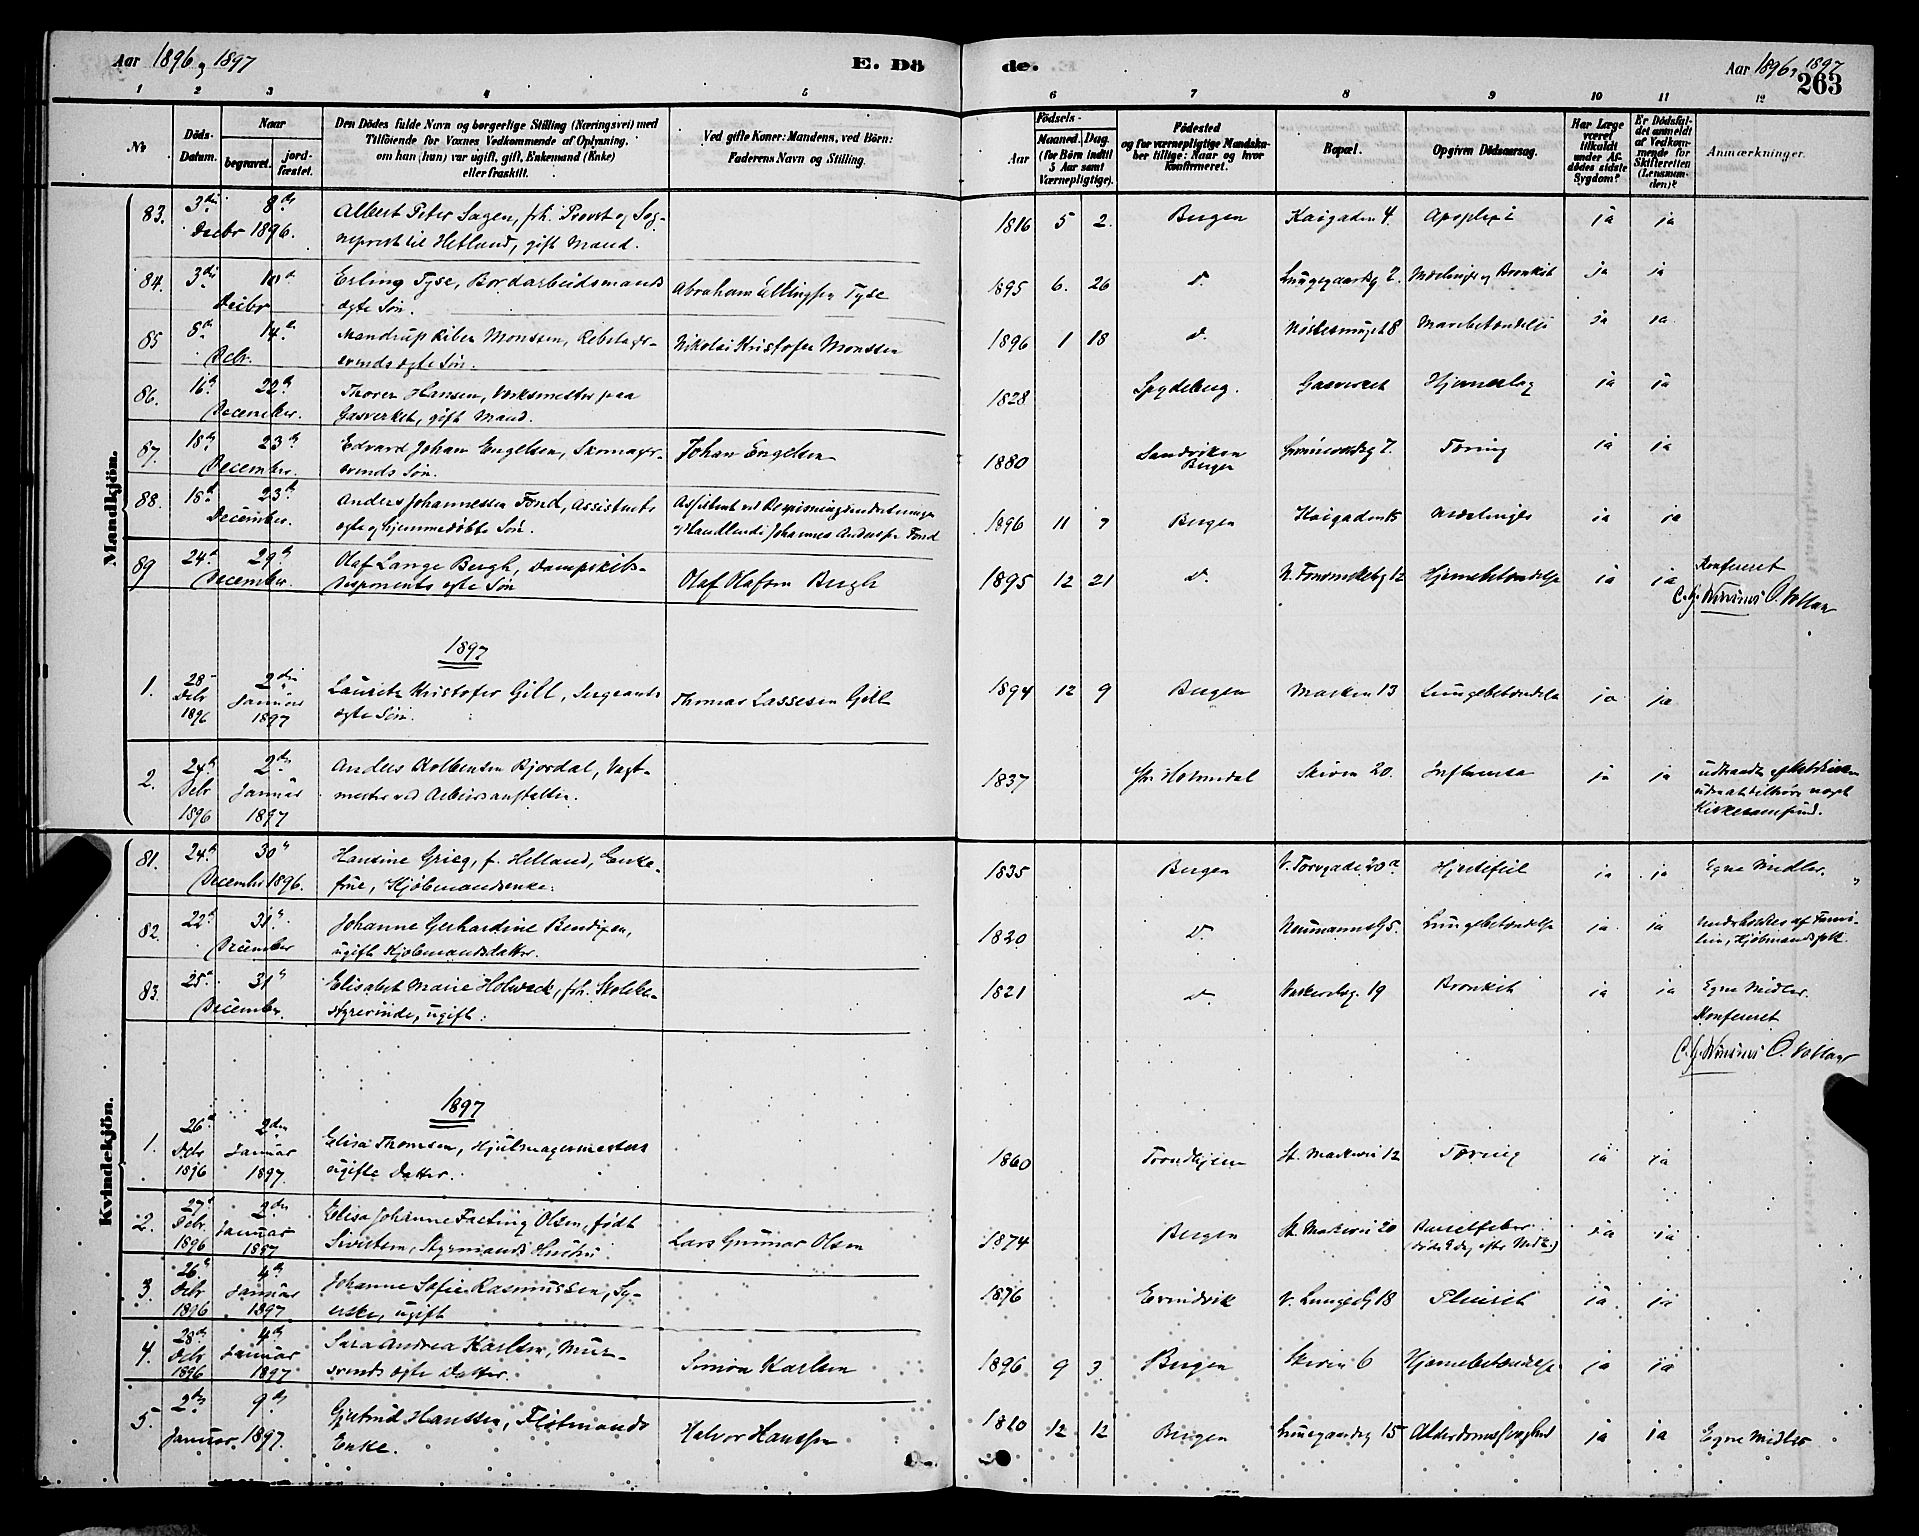 Aar 1896 og 1897
E. Dö
de.
Aar 1896, 1897
263
1 2 3 4 5 6 7 8 9 10 11 12
No
Döds-Datum.
Naar
begravet.
jordfæstet.
Den Dödes fulde Navn og borgerlige Stilling (Næringsvei) med
Tilföiende for Voxnes Vedkommende af Oplysning,
om han (hun) var ugift, gift, Enkemand (Enke)
eller fraskilt.
Ved gifte Koner: Mandens, ved Börn:
Faderens Navn og Stilling.
Födsels-
Aar
Maaned. Dag.
(for Börn indtil
5 Aar samt
Værnepligtige).
Födested
og for værnepligtige Mandska-
ber tillige: Naar og hvor
konfirmeret.
Bopæl.
Opgiven Dödsaarsag.
Har Læge
været
tilkaldt
under Af-
dödes sidste
Sygdom?
Er Dödsfal-
det anmeldt
af Vedkom-
mende for
Skifteretten
(Lensman-
den)?
Anmærkninger.
Mandkjön.
83. 3die 8de Decbr 1896. Albert Peter Sagen, fh. Provst og Sog-
neprest til Hetland, gift Mand. 1816 5 2 Bergen Kaigaden 4. Apoplexi ja ja
84. 3die 10de Decbr Erling Tyse, Bordarbeidsmands
ægte Søn. Abraham Ellingsen Tyse 1895 6. 26 d. Lungegaardsg 2. Mæslinger og Bronkit ja ja
85 8de 14de Decbr. Mandrup Riber Monssen, Rebslager-
svends ægte Søn. Nikolai Kristofer Monssen 1896 1 18 d. Nøstesmuget 8 Mavebetændelse ja ja
86. 16de 22de December. Thorer Hansen, Værksmester paa
Gasverket, gift Mand. 1828 Spydeberg. Gasverket Hjerneslag ja ja
87. 18de 23de December. Edvard Johan Engelsen, Skomager-
svends Søn. Johan Engelsen 1880 Sandviken
Bergen 7. Tæring ja ja
88. 18de 23de December. Anders Johannessen Fond, Assistents
ægte og hjemmedøbte Søn. Assistent ved Bespisningsindretningen
og Handlende Johannes Andersen Fond 1896 11 7 Bergen Kaigaden 15 Mæslinger ja ja
89 24de 29de December. Olaf Lange Bergh, Dampskibs-
disponents ægte Søn Olaf Olafsen Bergh 1895 12 21 d. 12 Hjernebetændelse ja ja Konfereret
1897
1. 28de Decbr 1896 2den Januar 1897 Lauritz Kristofer Gill, Sergeants
ægte Søn. Thomas Lassesen Gill 1894 12 9 Bergen Marken 13 Lungebetændelse ja ja
2. 24de Decbr 1896 2den Januar 1897 Anders Kolbensen Bjordal, Vagt-
mester ved Arbeidsanstalten. 1837 Holmedal Skiven 20. Influensa ja ja udtraadt af Statskirken
uden at tilhøre noget
Kirkesamfund.
Kvindekjön.
81. 24de 30te December 1896. Hansine Grieg, f. Helland, Enke-
frue, Kjøbmandsenke. 1835 Bergen V. Torvgade 20a Hjertefeil ja ja Egne Midler.
82. 22de 31te December Johanne Gerhardine Bendixen,
ugift Kjøbmandsdatter. 1820 d. Neumannsg 5. Lungebetændelse ja ja Understøttes af Fami-
lien, Kjøbmandsfolk.
83. 25de 31te December. Elisabet Marie Holweck, fh. Skolebe-
styrerinde, ugift. 1821 d. 19 Bronkit ja ja Egne Midler.
Konfereret
1897
1. 26de Decbr 1896 2den Januar 1897. Elisa Thomsen, Hjulmagermesters
ugifte Datter. 1860 Trondhjem St. Markevei 12 Tæring ja ja
2. 27de Decbr. 1896 2den Januar 1897 Elisa Johanne Fasting Olsen, født
Sivertsen, Styrmands Hustru. Lars Gunnar Olsen 1874 Bergen St. Markevei 20 Barselfeber ja ja
3. 26de Decbr 1896 4de Januar 1897 Johanne Sofie Rasmussen, Sy-
erske, ugift 1876 Evindvik V. Lungegd 18 Pleurit ja ja
4. 28de Decbr 1896 4de Januar 1897 Sara Andrea Karlsen, Mur-
svends ægte Datter. Simon Karlsen 1896 9 3. Bergen Skiven 6 Hjernebetændelse ja ja
5. 2den 9de Januar 1897. Gjertrud Hanssen, Fløtmands
Enke. Halvor Hanssen 1810 12 12 Bergen Lungegaardsg 15 Alderdomssvaghed ja ja Egne Midler